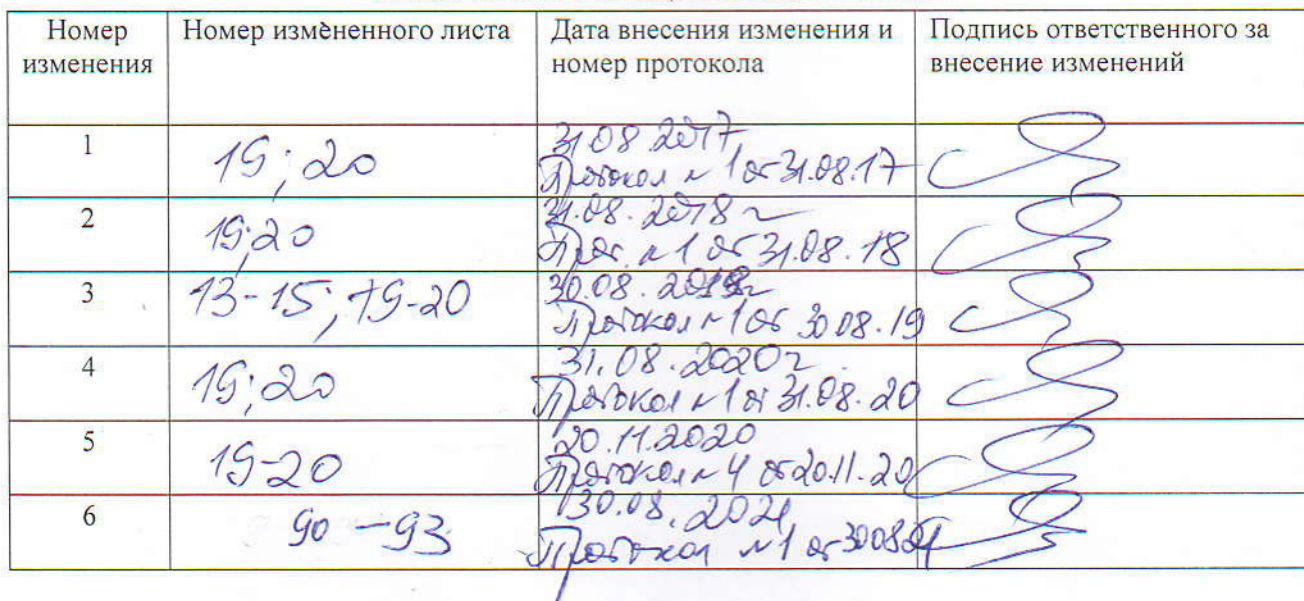 Номер изменения
Номер изменённого листа
Дата внесения изменения и номер протокола
Подпись ответственного за внесение изменений
1
19; 20
31.08.2017
Протокол №1 от 31.08.17
2
19; 20
31.08.2018 г
Прот. №1 от 31.08.18
3
13-15; 19-20
30.08.2019г
Протокол №1 от 30.08.19
4
19; 20
31.08.2020 г.
Протокол №1 от 31.08.20
5
19-20
20.11.2020
Протокол №4 от 20.11.20
6
90-93
30.08.2021
Протокол №1 от 300821